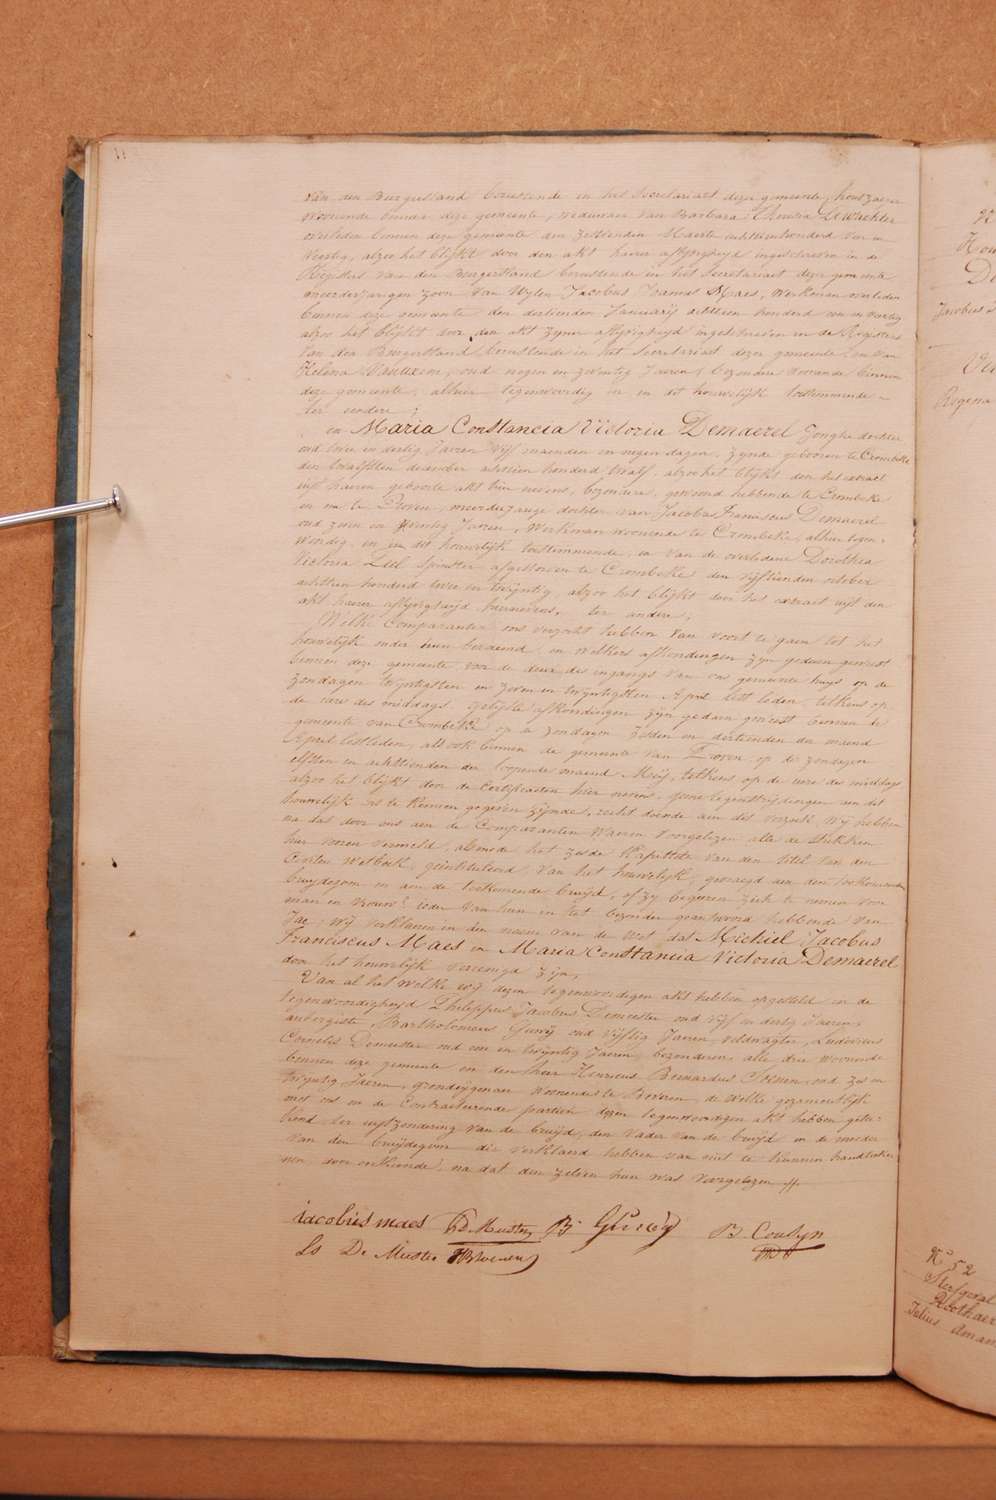 11
van den Burgerstand berustende in het Secretariaet dezer gemeente, houtzager
woonende binnen deze gemeente, weduwaer van Barbara Theresia Dewachter
overleden binnen deze gemeente den zesthienden Maerte achttienhonderd vier en
veertig, alzoo het blijkt door den akt harer aflijvigheyd ingeschreven in de
Registers van den Burgerstand berustende in het Secretariaet dezer gemeente
meerderjarigen zoon van Wylen Jacobus Joannes Maes, Werkman overleden
binnen deze gemeente den dertienden Januarij achttien honderd een en veertig
alzoo het blijkt door den akt zyner aflijvigheyd ingeschreven in de Registers
van den Burgerstand berustende in het Secretariaet dezer gemeente en van
Helena oud negen en zeventig Jaeren, bezondere woonende binnen
deze gemeente, alhier tegenwoordig en in dit houwelijk toestemmende
ter eendere;
en Maria Constancia Victoria Demaerel Jonghe dochter
oud twee en dertig Jaeren vijf maenden en negen dagen, zynde geboren te Crombeke
den twalfsten december achttien honderd twalf, alzoo het blijkt door het extract
uijt haeren geboorte akt hier nevens, bezondere, gewoond hebbende te Crombeke
en nu te Proven, meerderjarige dochter van Jacobus Franciscus Demaerel
oud zeven en Jaeren, Werkman woonende te Crombeke, alhier tegen-
wordig en in dit houwelijk toestemmende, en van de overledene Dorothea
Victoria Leel Spinster afgestorven te Crombeke den vijftienden october
achttien honderd twee en twijntig, alzoo het blijkt door het extract uijt den
akt haerer aflijvigheijd hiernevens, ter andere;
Welke Comparanten ons verzocht hebben van voort te gaen tot het
houwelijk onder hun beraemd, en welkers afkondingen zyn gedaen geweest
binnen deze gemeente voor de deure des ingangs van ons gemeente huys op de
zondagen twijntigsten en zeven en twijntigsten April lest leden, telkens op
de ure des middags, gelijke afkondingen zijn gedaen geweest binnen de
gemeente van Crombeke op de zondagen zesden en dertienden der maend
April lestleden, als ook binnen de gemeente van Proven, op de zondagen
elfsten en achttienden der loopende maend Meij, telkens op de uere des middags
alzoo het blijkt door de Certificaeten hier nevens, geene tegenstrijdingen aen dit
houwelijk ons te kennen gegeven zijnde, recht doende aen dit verzoek, wij hebben
na dat door ons aen de Comparanten Waeren voorgelezen alle de Stukken
hier voren vermeld, alsmede het zesde Kapittele van den titel van den
Civilen Wetboek, geintituleerd, van het houwelijk, gevraegd aen den toekomende
bruijdegom en aen de toekomende bruijd, of zy begeeren zich te nemen voor
man en Vrouw? ieder van hun in het bezonder geantwoord hebbende van
Jae: Wij verklaeren in den naem van de Wet dat Michiel Jacobus
Franciscus Maes en Maria Constancia Victoria Demaerel
door het houwelijk vereenigd zijn.
Van al het welke wij dezen tegenwoordigen akt hebben opgesteld in de
tegenwoordigheijd Philippus Jacobus Demeester oud vijf en dertig Jaeren,
aubergiste Bartholomeus oud vijftig Jaeren veldwagter, Ludovicus
Cornelis Demeester oud een en twijntig Jaeren, bezonderen, alle drie woonende
binnen deze gemeente en den heer Henricus Bernardus Soenen, oud zes en
twijntig Jaeren, grondeijgenaer woonende te Beveren, de Welke gezamentlijk
met ons en de Contracteerende partien dezen tegenwoordigen akt hebben getee-
kend ter uijtzondering van de bruijd, den vader van de bruijd en de moeder
van den bruijdegom die verklaerd hebben van niet te kunnen handteeke-
nen, door onkunde, na dat den zelven hun was voorgelezen //
iacobús maes B. B. Coulyn
Ls De Meester HB Soenen
Jacobus
Vi
Regina
N° 52
Julius Aman